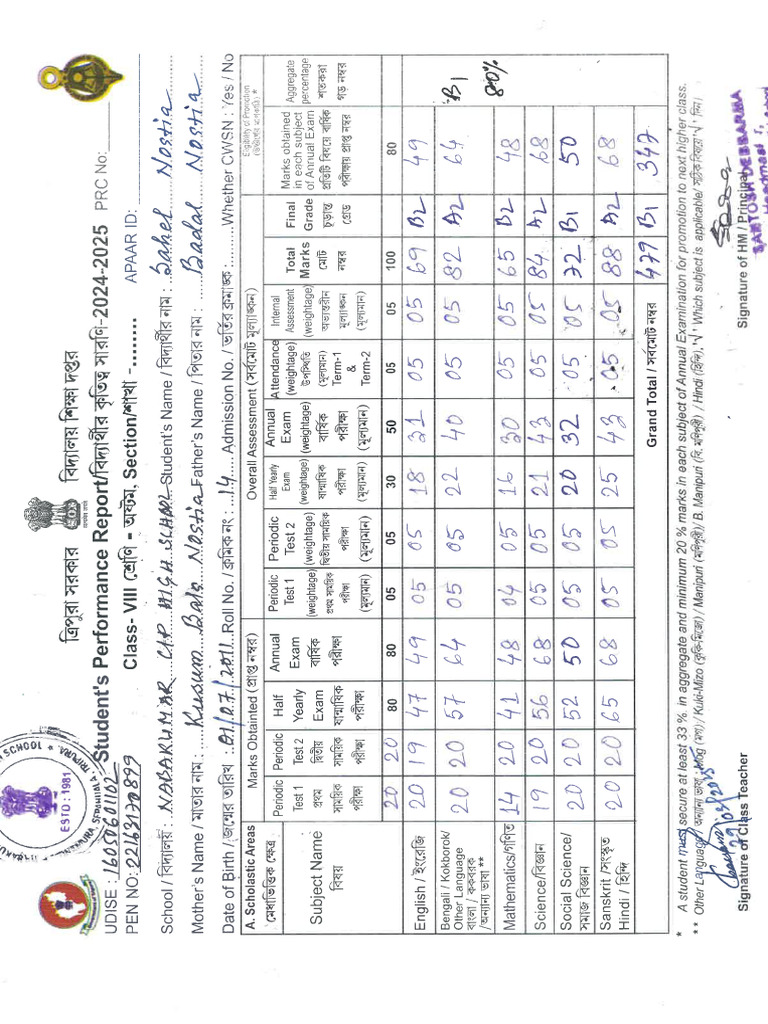 ত্রিপুরা সরকার বিদ্যালয় শিক্ষা দপ্তর
Student's Performance Report/বিদ্যার্থীর কৃতিত্ব সারণি-2024-2025 PRC No:
Class- VIII শ্রেণি - অষ্টম, Section/শাখা -........ APAAR ID:
ESTD : 1981
UDISE : 16050601102
PEN NO: 22163170899
School / বিদ্যালয় : NABAKUMAR C/P HIGH SCHOOL Student's Name / বিদ্যার্থীর নাম : Sahel Nostia
Mother's Name / মাতার নাম : Kusum Bala Nostia Father's Name / পিতার নাম : Badal Nostia
Date of Birth / জন্মের তারিখ : 01/07/2011 Roll No. / ক্রমিক নং : 14 Admission No. / ভর্তির ক্রমাঙ্ক : Whether CWSN : Yes / No
A. Scholastic Areas Marks Obtainted (প্রাপ্ত নম্বর) Overall Assessment (সর্বমোট মূল্যাঙ্কন) Eligibility of Promotion
Subject Name বিষয় Periodic Test 1 প্রথম সাময়িক পরীক্ষা Periodic Test 2 দ্বিতীয় সাময়িক পরীক্ষা Half Yearly Exam ষান্মাষিক পরীক্ষা Annual Exam বার্ষিক পরীক্ষা Periodic Test 1 (weightage) প্রথম সাময়িক পরীক্ষা (মূল্যমান) Periodic Test 2 (weightage) দ্বিতীয় সাময়িক পরীক্ষা (মূল্যমান) Half Yearly Exam (weightage) ষান্মাষিক পরীক্ষা (মূল্যমান) Annual Exam (weightage) বার্ষিক পরীক্ষা (মূল্যমান) Attendance (weightage) উপস্থিতি (মূল্যমান) Term-1 & Term-2 Internal Assessment (weightage) অভ্যন্তরীন মূল্যাঙ্কন (মূল্যমান) Total Marks মোট নম্বর Final Grade চূড়ান্ত গ্রেড Marks obtained in each subject of Annual Exam প্রতিটি বিষয়ে বার্ষিক পরীক্ষায় প্রাপ্ত নম্বর Aggregate percentage শতকরা গড় নম্বর
20 20 80 80 05 05 30 50 05 05 100 80
English / ইংরেজি 20 19 47 49 05 05 18 31 05 05 69 B2 49
Bengali / Kokborok/ Other Language বাংলা / ককবরক /অন্যান্য ভাষা ** 20 20 57 64 05 05 22 40 05 05 82 A2 64 B1
Mathematics/গণিত 14 20 41 48 04 05 16 30 05 05 65 B2 48 80%
Science/বিজ্ঞান 19 20 56 68 05 05 21 43 05 05 84 A2 68
Social Science/ সমাজ বিজ্ঞান 20 20 52 50 05 05 20 32 05 05 72 B1 50
Sanskrit /সংস্কৃত Hindi / হিন্দি 20 20 65 68 05 05 25 43 05 05 88 A2 68
Grand Total / সর্বমোট নম্বর 479 B1 347
* A student must secure at least 33 % in aggregate and minimum 20 % marks in each subject of Annual Examination for promotion to next higher class.
** Other Language/ অন্যান্য ভাষা : Mog (মগ) / Kuki-Mizo (কুকি-মিজো) / Manipuri (মণিপুরী) / B. Manipuri (বি. মণিপুরী) / Hindi (হিন্দি), '√' Which subject is applicable/ সঠিক বিষয়ে '√' দিন।
29/05/2025
Signature of Class Teacher Signature of HM / Principal
SANTOSH DEBBARMA